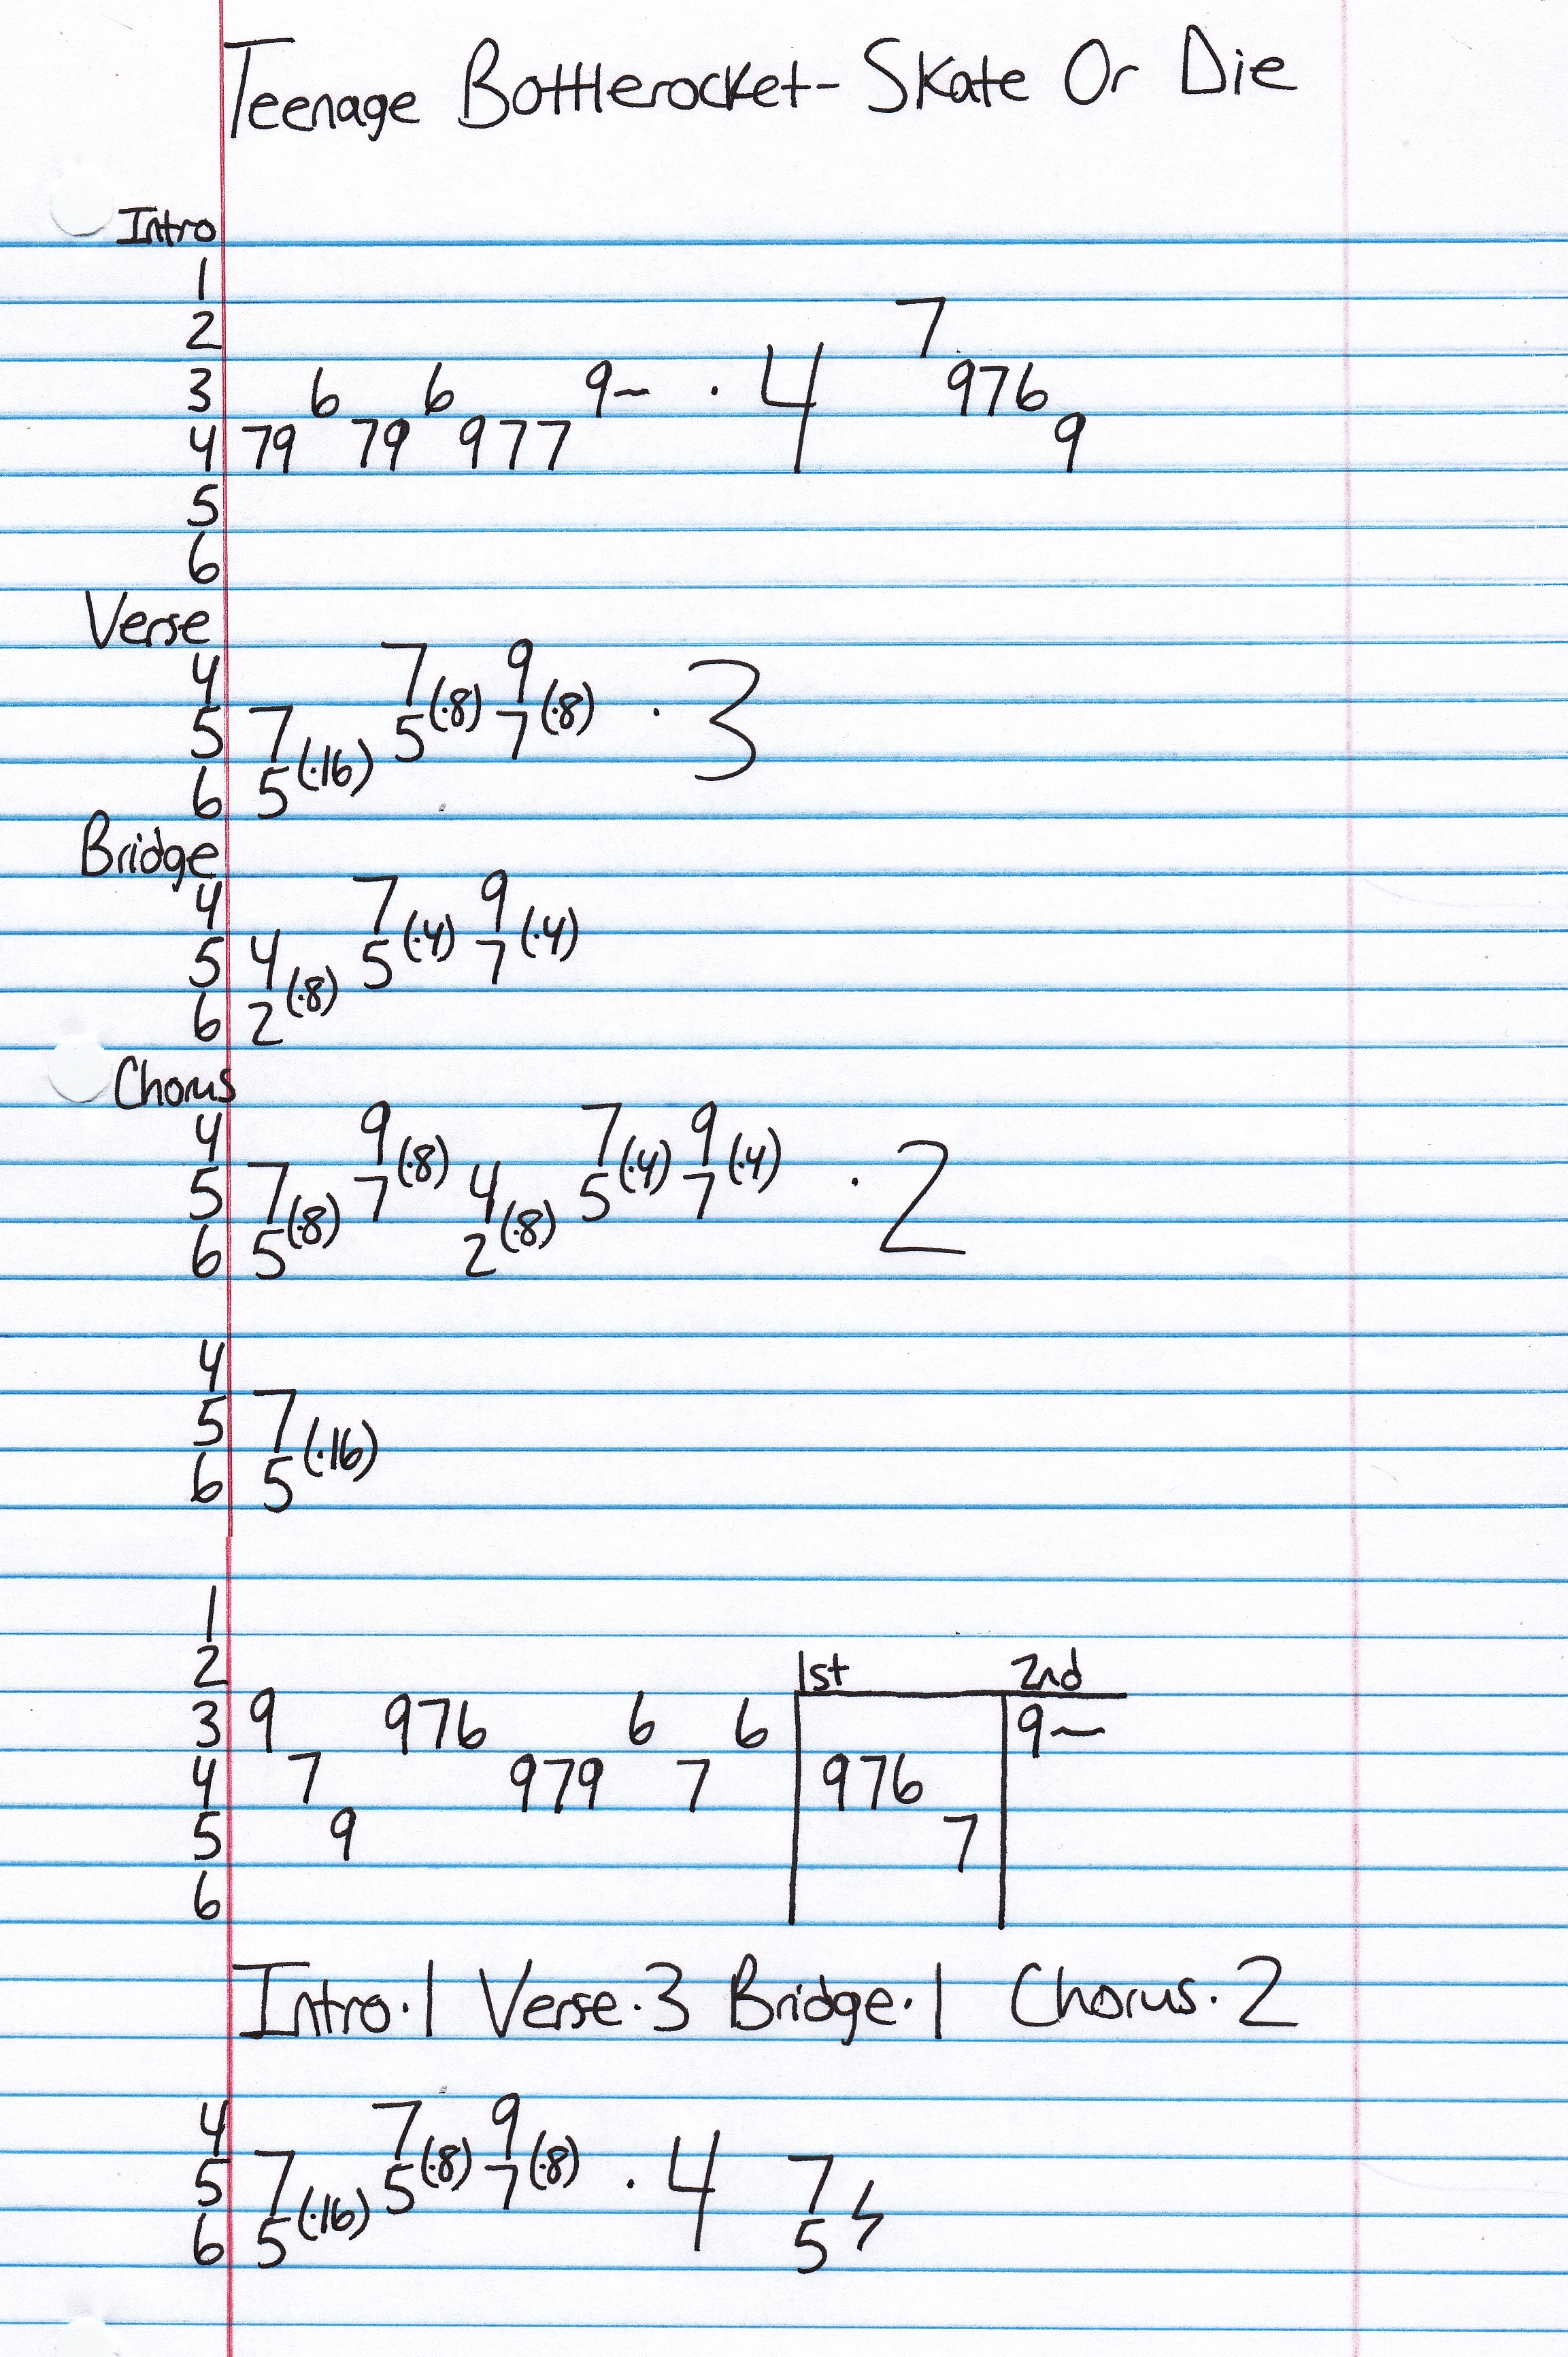 Teenage Bottlerocket- Skate Or Die
Intro
1
2 7
3 6 6 9~ · 4 976
4 79 79 977 9
5
6
Verse
4 7 9
5 7 5(·8) 7(·8) · 3
6 5(·16)
Bridge
4 7 9
5 4 5(·4) 7(·4)
6 2(·8)
Chorus
4 9 7 9
5 7 7(·8) 4 5(·4) 7(·4) · 2
6 5(·8) 2(·8)
4
5 7
6 5(·16)
1
2 1st 2nd
3 9 976 6 6 9~
4 7 979 7 976
5 9 7
6
Intro·1 Verse·3 Bridge·1 Chorus·2
4 7 9
5 7 5(·8) 7(·8) · 4 7
6 5(·16) 5